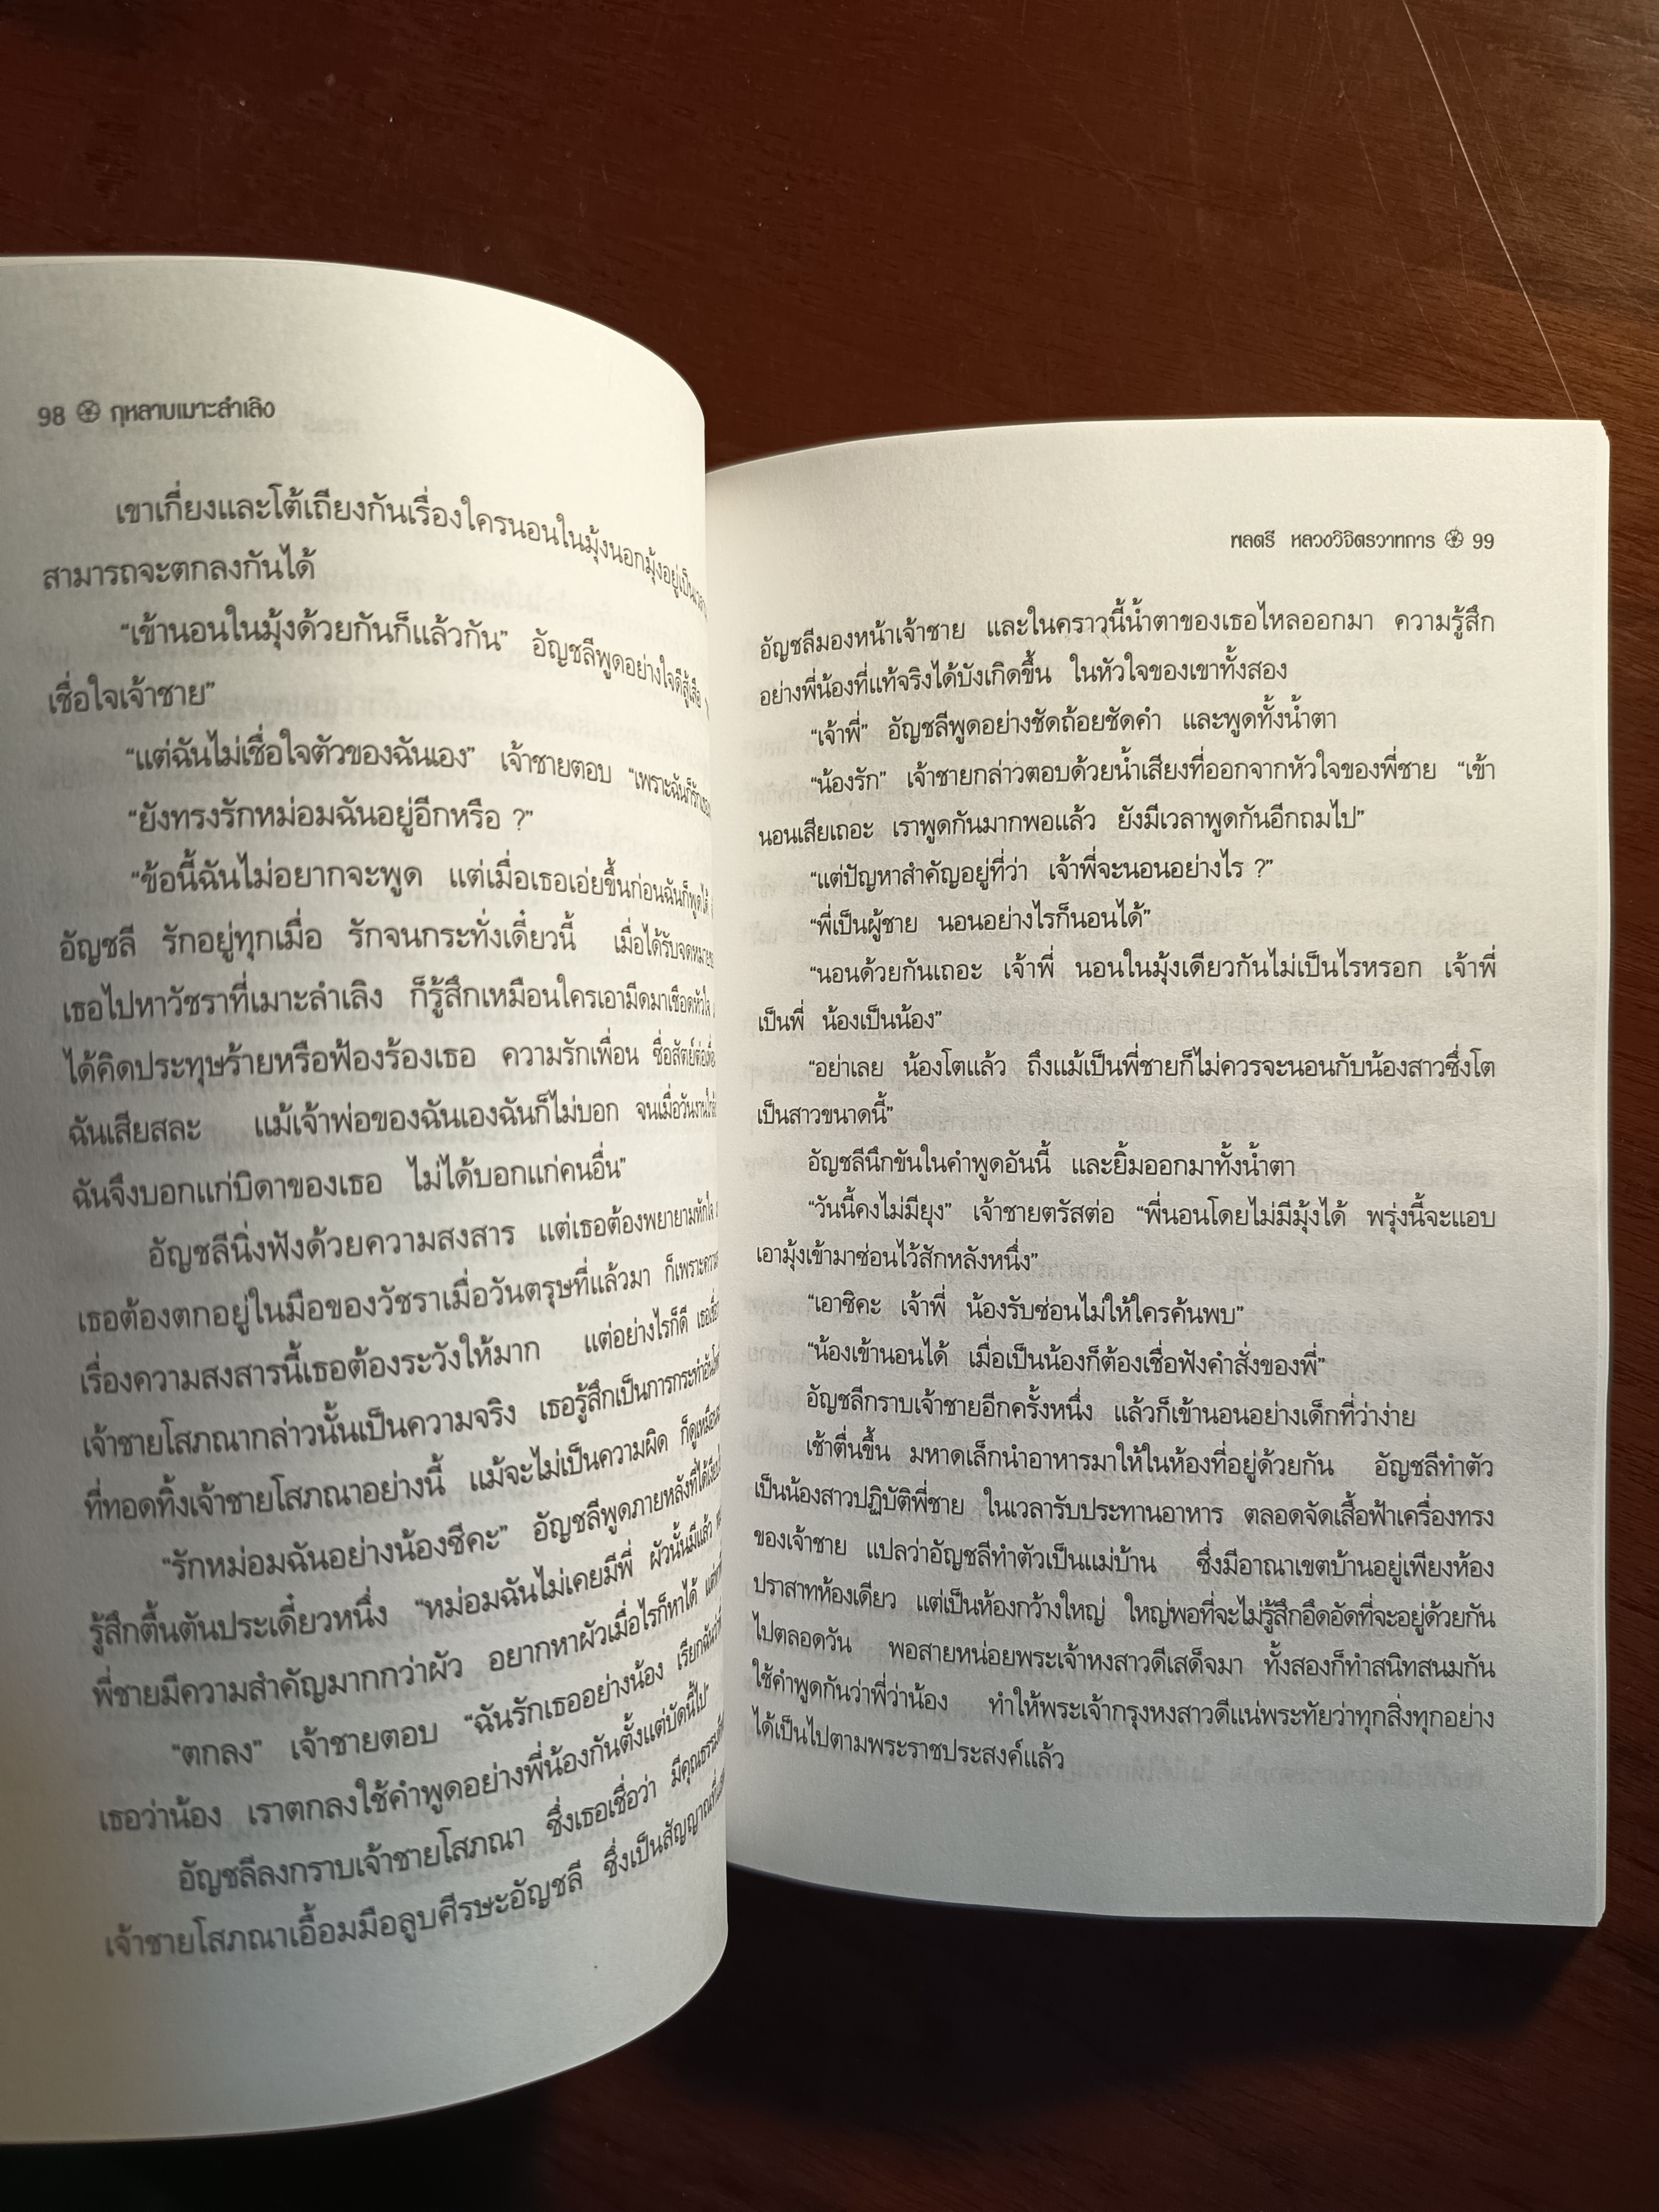 98 กุหลาบเมาะลำเลิง
เขาเกี่ยงและโต้เถียงกันเรื่องใครนอนในมุ้งนอกมุ้งอยู่เป็น
สามารถจะตกลงกันได้
“เข้านอนในมุ้งด้วยกันก็แล้วกัน” อัญชลีพูดอย่างใจดีสู้เสือ
เชื่อใจเจ้าชาย”
“แต่ฉันไม่เชื่อใจตัวของฉันเอง” เจ้าชายตอบ “เพราะฉันก็รัก
“ยังทรงรักหม่อมฉันอยู่อีกหรือ ?”
“ข้อนี้ฉันไม่อยากจะพูด แต่เมื่อเธอเอ่ยขึ้นก่อนฉันก็พูดได้
อัญชลี รักอยู่ทุกเมื่อ รักจนกระทั่งเดี๋ยวนี้ เมื่อได้รับจดหมาย
เธอไปหาวัชราที่เมาะลำเลิง ก็รู้สึกเหมือนใครเอามีดมาเชือดหัวใจ
ได้คิดประทุษร้ายหรือฟ้องร้องเธอ ความรักเพื่อน ซื่อสัตย์ต่อเพื่อ
ฉันเสียสละ แม้เจ้าพ่อของฉันเองฉันก็ไม่บอก จนเมื่อวันงาน
ฉันจึงบอกแก่บิดาของเธอ ไม่ได้บอกแก่คนอื่น”
อัญชลีนิ่งฟังด้วยความสงสาร แต่เธอต้องพยายามหักใจ
เธอต้องตกอยู่ในมือของวัชราเมื่อวันตรุษที่แล้วมา ก็เพราะความ
เรื่องความสงสารนี้เธอต้องระวังให้มาก แต่อย่างไรก็ดี เธอเชื่อ
เจ้าชายโสภณากล่าวนั้นเป็นความจริง เธอรู้สึกเป็นการกระทำอัน
ที่ทอดทิ้งเจ้าชายโสภณาอย่างนี้ แม้จะไม่เป็นความผิด ก็ดูเหมือน
“รักหม่อมฉันอย่างน้องซีคะ” อัญชลีพูดภายหลังที่ได้
รู้สึกตื้นตันประเดี๋ยวหนึ่ง “หม่อมฉันไม่เคยมีพี่ ผัวนั้นมีแล้ว
พี่ชายมีความสำคัญมากกว่าผัว อยากหาผัวเมื่อไรก็หาได้
“ตกลง” เจ้าชายตอบ “ฉันรักเธออย่างน้อง เรียกฉันว่าพี่
เธอว่าน้อง เราตกลงใช้คำพูดอย่างพี่น้องกันตั้งแต่บัดนี้ไป”
อัญชลีลงกราบเจ้าชายโสภณา ซึ่งเธอเชื่อว่า มีคุณธรรม
เจ้าชายโสภณาเอื้อมมือลูบศีรษะอัญชลี ซึ่งเป็นสัญญาณ
พลตรี หลวงวิจิตรวาทการ 99
อัญชลีมองหน้าเจ้าชาย และในคราวนี้น้ำตาของเธอไหลออกมา ความรู้สึก
อย่างพี่น้องที่แท้จริงได้บังเกิดขึ้น ในหัวใจของเขาทั้งสอง
“เจ้าพี่” อัญชลีพูดอย่างชัดถ้อยชัดคำ และพูดทั้งน้ำตา
“น้องรัก” เจ้าชายกล่าวตอบด้วยน้ำเสียงที่ออกจากหัวใจของพี่ชาย “เข้า
นอนเสียเถอะ เราพูดกันมากพอแล้ว ยังมีเวลาพูดกันอีกถมไป”
“แต่ปัญหาสำคัญอยู่ที่ว่า เจ้าพี่จะนอนอย่างไร ?”
“พี่เป็นผู้ชาย นอนอย่างไรก็นอนได้”
“นอนด้วยกันเถอะ เจ้าพี่ นอนในมุ้งเดียวกันไม่เป็นไรหรอก เจ้าพี่
เป็นพี่ น้องเป็นน้อง”
“อย่าเลย น้องโตแล้ว ถึงแม้เป็นพี่ชายก็ไม่ควรจะนอนกับน้องสาวซึ่งโต
เป็นสาวขนาดนี้”
อัญชลีนึกขันในคำพูดอันนี้ และยิ้มออกมาทั้งน้ำตา
“วันนี้คงไม่มียุง” เจ้าชายตรัสต่อ “พี่นอนโดยไม่มีมุ้งได้ พรุ่งนี้จะแอบ
เอามุ้งเข้ามาซ่อนไว้สักหลังหนึ่ง”
“เอาซิคะ เจ้าพี่ น้องรับซ่อนไม่ให้ใครค้นพบ”
“น้องเข้านอนได้ เมื่อเป็นน้องก็ต้องเชื่อฟังคำสั่งของพี่”
อัญชลีกราบเจ้าชายอีกครั้งหนึ่ง แล้วก็เข้านอนอย่างเด็กที่ว่าง่าย
เช้าตื่นขึ้น มหาดเล็กนำอาหารมาให้ในห้องที่อยู่ด้วยกัน อัญชลีทำตัว
เป็นน้องสาวปฏิบัติพี่ชาย ในเวลารับประทานอาหาร ตลอดจัดเสื้อฟ้าเครื่องทรง
ของเจ้าชาย แปลว่าอัญชลีทำตัวเป็นแม่บ้าน ซึ่งมีอาณาเขตบ้านอยู่เพียงห้อง
ปราสาทห้องเดียว แต่เป็นห้องกว้างใหญ่ ใหญ่พอที่จะไม่รู้สึกอึดอัดที่จะอยู่ด้วยกัน
ไปตลอดวัน พอสายหน่อยพระเจ้าหงสาวดีเสด็จมา ทั้งสองก็ทำสนิทสนมกัน
ใช้คำพูดกันว่าพี่ว่าน้อง ทำให้พระเจ้ากรุงหงสาวดีแน่พระทัยว่าทุกสิ่งทุกอย่าง
ได้เป็นไปตามพระราชประสงค์แล้ว